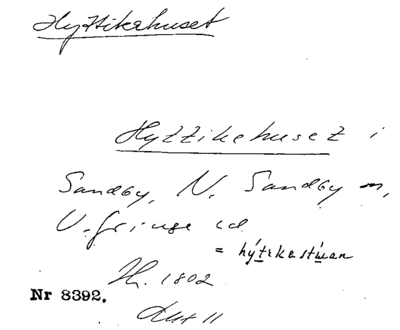 Hyttikehuset
Hyttikehuset i
Sandby, N. Sandby sn,
V. Göinge hd
= hýtikastúan
H. 1802
Nr 8392.